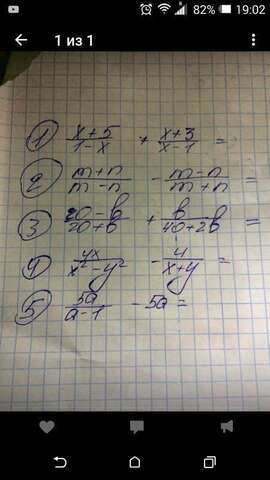 82% 19:02
1 из 1
1) (x+5)/(1-x) + (x+3)/(x-1) =
2) (m+n)/(m-n) - (m-n)/(m+n) =
3) (20-b)/(20+b) + b/(40+2b)
4) 4x/(x²-y²) - 4/(x+y) =
5) 5a/(a-1) - 5a =